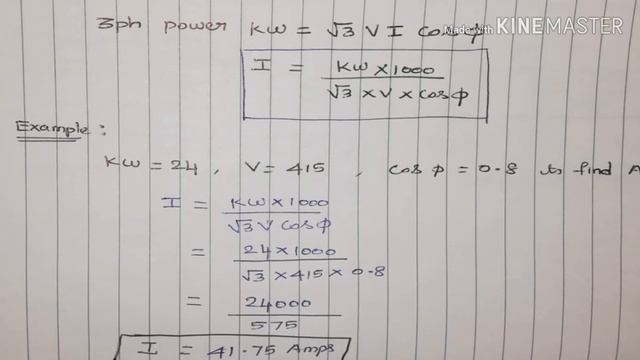 3ph power KW = √3 V I Cosϕ
Made with KINEMASTER
I = KW×1000
√3 × V × Cosϕ
Example:
KW = 24, V = 415, Cosϕ = 0.8 to find A
I = KW×1000
√3 V Cosϕ
= 24×1000
√3 × 415 × 0.8
= 24000
575
I = 41.75 Amps